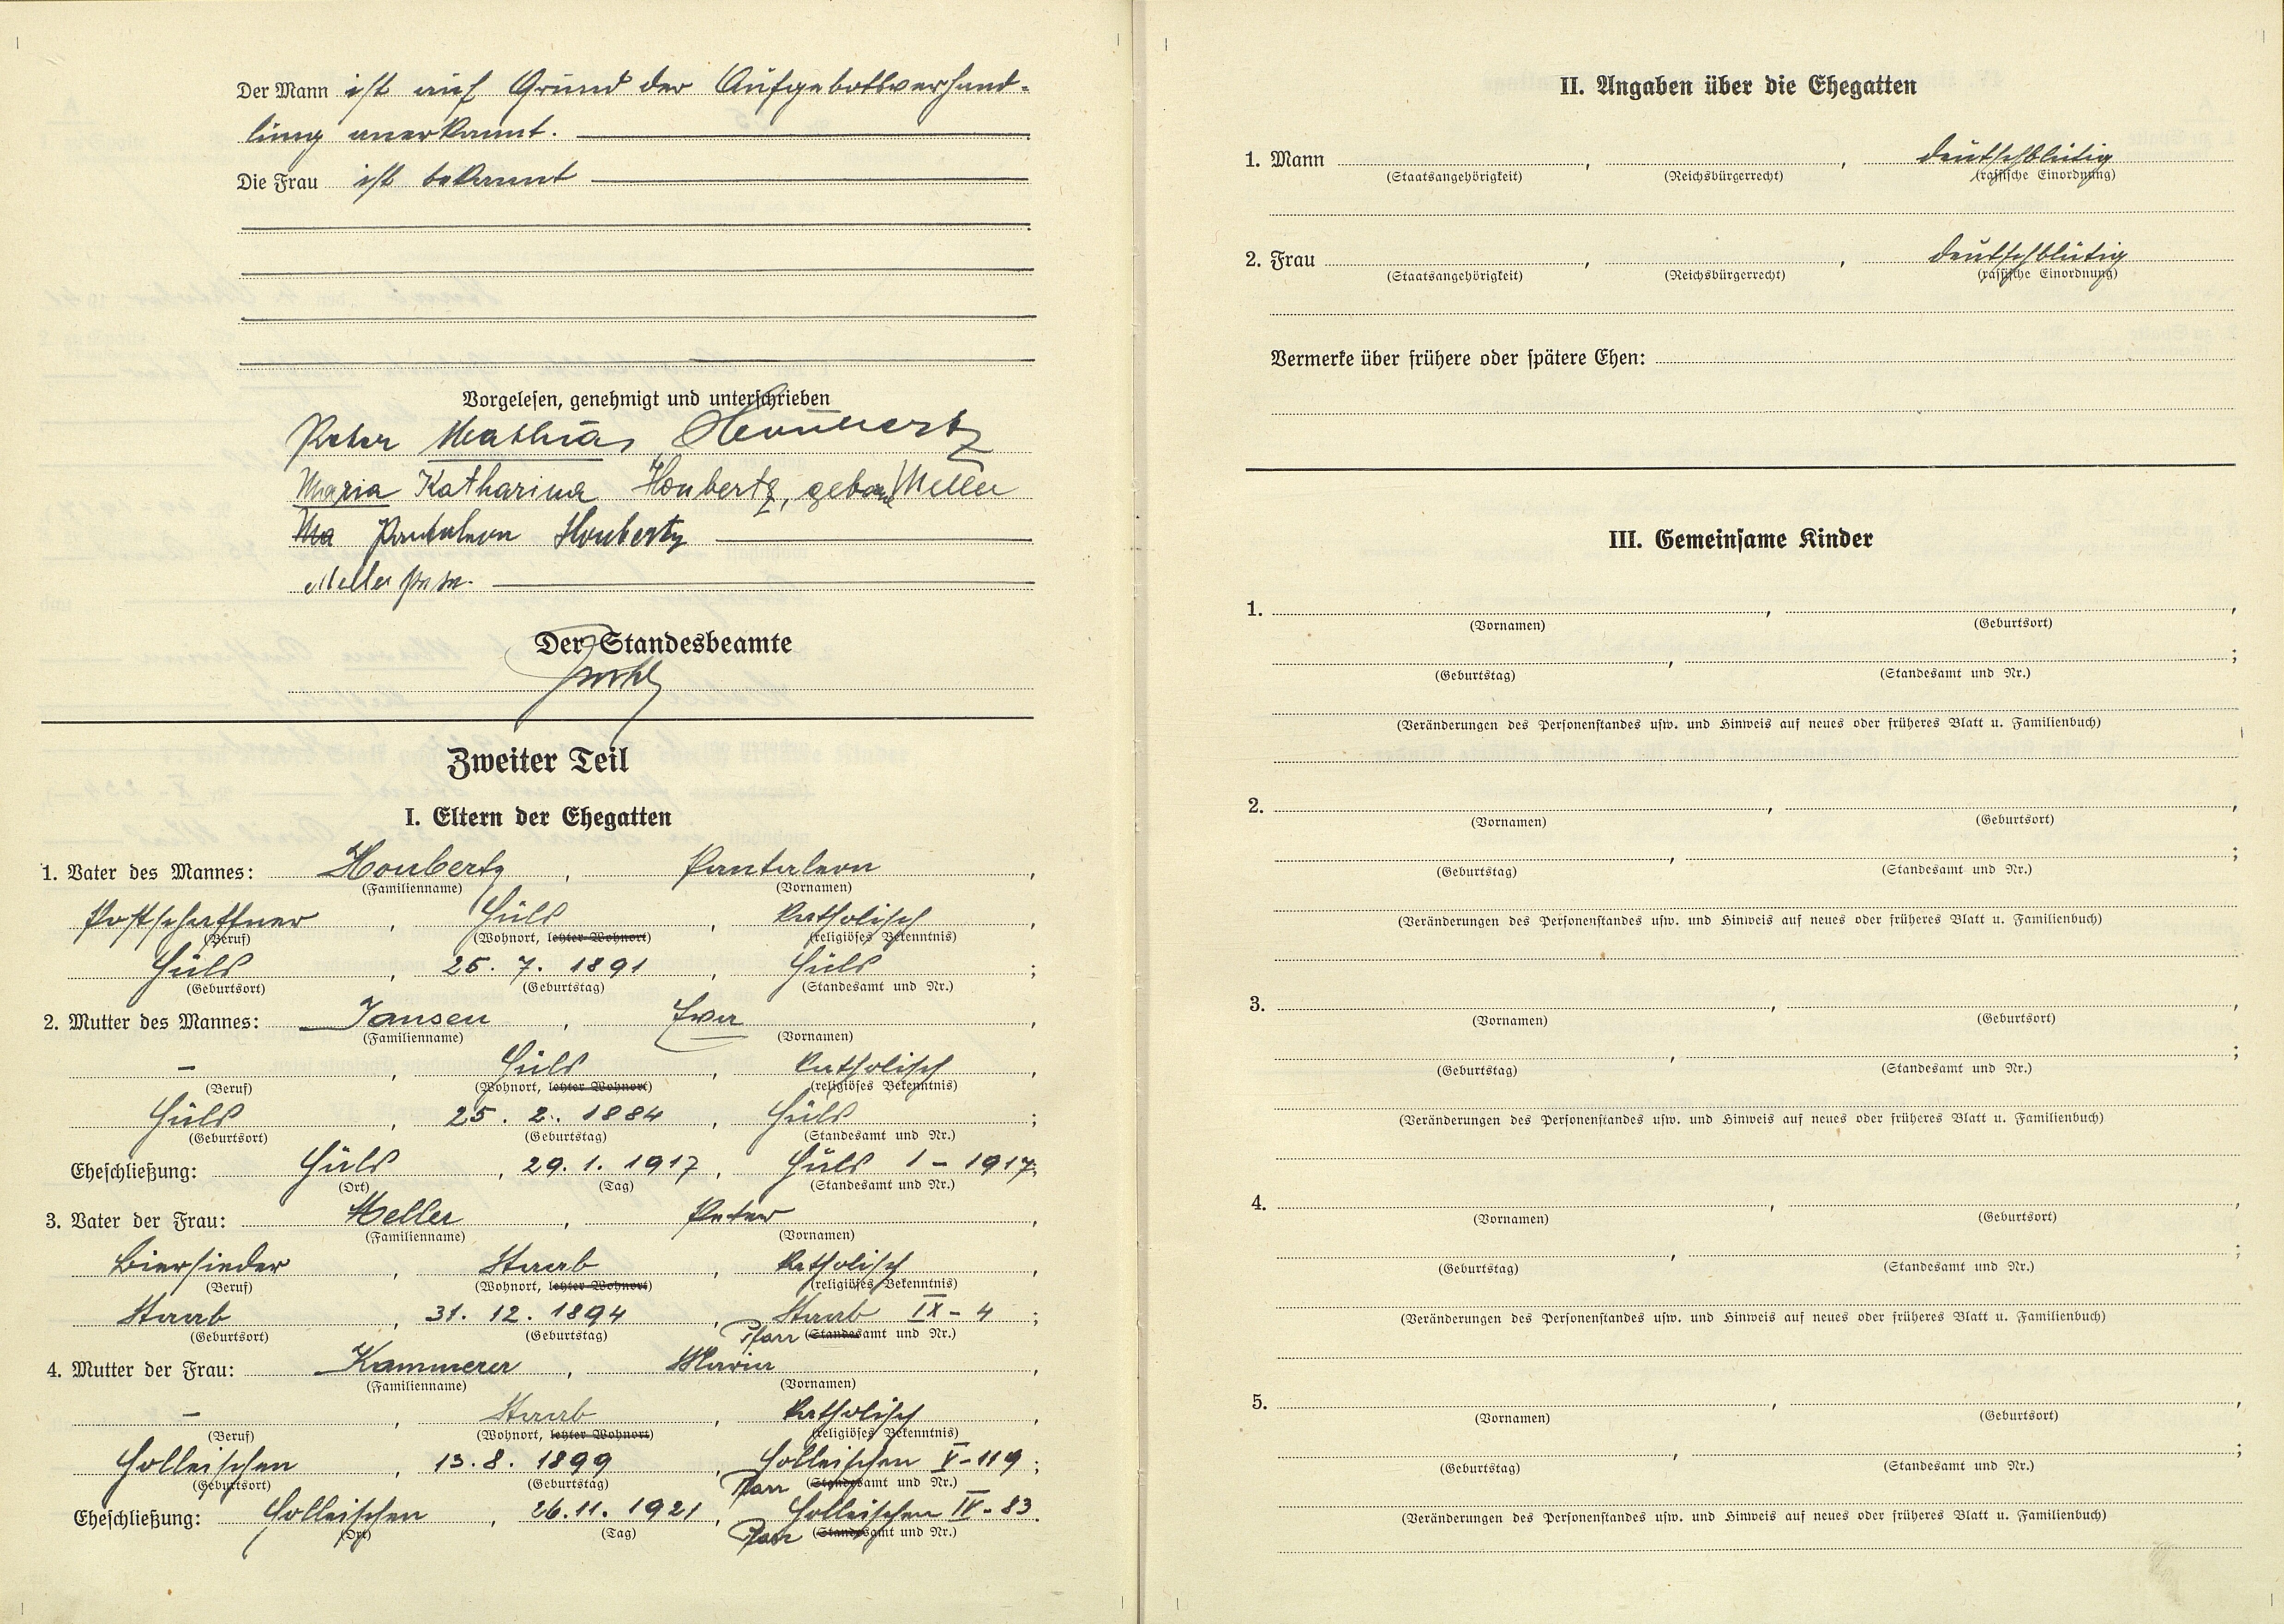 Der Mann ist auf Grund der Aufgebotsverhand-
lung anerkannt.
Die Frau ist bekannt
Vorgelesen, genehmigt und unterschrieben
Peter Mathias Houbertz
Maria Katharina Houbertz, geborne Meller
Ma Pantaleon Houbertz
Meller Peter
Der Standesbeamte
Zweiter Teil
I. Eltern der Ehegatten
1. Vater des Mannes: Houbertz, Pantaleon,
(Familienname) (Vornamen)
Postschaffner, Hüls, katholisch,
(Beruf) (Wohnort, letzter Wohnort) (religiöses Bekenntnis)
Hüls, 25. 7. 1891, Hüls;
(Geburtsort) (Geburtstag) (Standesamt und Nr.)
2. Mutter des Mannes: Jansen, Ewa,
(Familienname) (Vornamen)
–, Hüls, katholisch,
(Beruf) (Wohnort, letzter Wohnort) (religiöses Bekenntnis)
Hüls, 25. 2. 1884, Hüls;
(Geburtsort) (Geburtstag) (Standesamt und Nr.)
Eheschließung: Hüls, 29. 1. 1917, Hüls 1 – 1917.
(Ort) (Tag) (Standesamt und Nr.)
3. Vater der Frau: Meller, Peter,
(Familienname) (Vornamen)
Biersieder, Staab, katholisch,
(Beruf) (Wohnort, letzter Wohnort) (religiöses Bekenntnis)
Staab, 31. 12. 1894, Staab IX – 4;
(Geburtsort) (Geburtstag) Pfarr (Standesamt und Nr.)
4. Mutter der Frau: Kammerer, Maria,
(Familienname) (Vornamen)
–, Staab, katholisch,
(Beruf) (Wohnort, letzter Wohnort) (religiöses Bekenntnis)
Holleischen, 13. 8. 1899, Holleischen V – 119;
(Geburtsort) (Geburtstag) Pfarr (Standesamt und Nr.)
Eheschließung: Holleischen, 26. 11. 1921, Holleischen IV – 83.
(Ort) (Tag) Pfarr (Standesamt und Nr.)
II. Angaben über die Ehegatten
1. Mann , , deutschblütig
(Staatsangehörigkeit) (Reichsbürgerrecht) (rassische Einordnung)
2. Frau , , deutschblütig
(Staatsangehörigkeit) (Reichsbürgerrecht) (rassische Einordnung)
Vermerke über frühere oder spätere Ehen:
III. Gemeinsame Kinder
1. , ,
(Vornamen) (Geburtsort)
, ;
(Geburtstag) (Standesamt und Nr.)
(Veränderungen des Personenstandes usw. und Hinweis auf neues oder früheres Blatt u. Familienbuch)
2. , ,
(Vornamen) (Geburtsort)
, ;
(Geburtstag) (Standesamt und Nr.)
(Veränderungen des Personenstandes usw. und Hinweis auf neues oder früheres Blatt u. Familienbuch)
3. , ,
(Vornamen) (Geburtsort)
, ;
(Geburtstag) (Standesamt und Nr.)
(Veränderungen des Personenstandes usw. und Hinweis auf neues oder früheres Blatt u. Familienbuch)
4. , ,
(Vornamen) (Geburtsort)
, ;
(Geburtstag) (Standesamt und Nr.)
(Veränderungen des Personenstandes usw. und Hinweis auf neues oder früheres Blatt u. Familienbuch)
5. , ,
(Vornamen) (Geburtsort)
, ;
(Geburtstag) (Standesamt und Nr.)
(Veränderungen des Personenstandes usw. und Hinweis auf neues oder früheres Blatt u. Familienbuch)